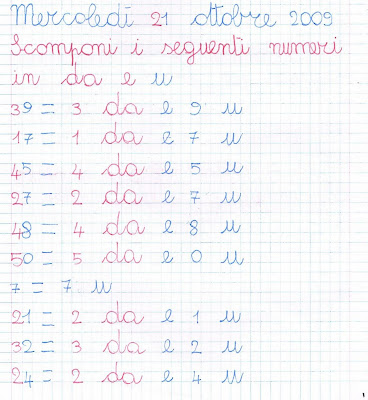 Mercoledì 21 ottobre 2009
Scomponi i seguenti numeri
in da e u
39 = 3 da e 9 u
17 = 1 da e 7 u
45 = 4 da e 5 u
27 = 2 da e 7 u
48 = 4 da e 8 u
50 = 5 da e 0 u
7 = 7 u
21 = 2 da e 1 u
32 = 3 da e 2 u
24 = 2 da e 4 u
1